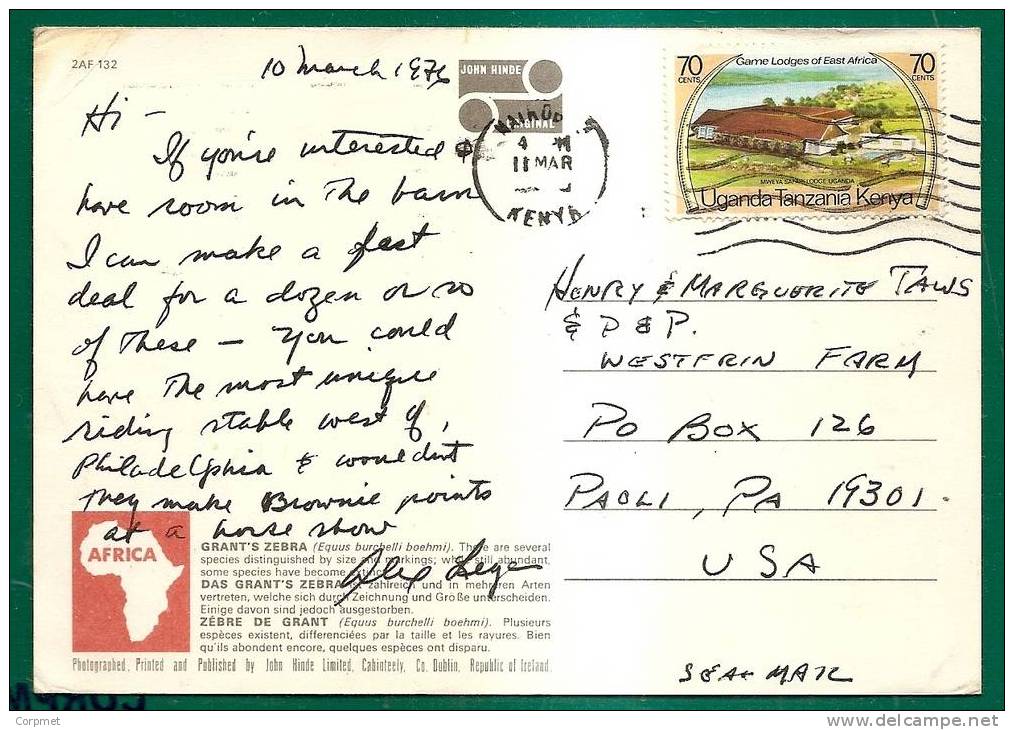 2AF 132
10 March 1976
JOHN HINDE
ORIGINAL
NAIROBI
11 MAR
KENYA
70 CENTS
Game Lodges of East Africa
70 CENTS
MWEYA SAFARI LODGE UGANDA
Uganda Tanzania Kenya
Hi -
If you're interested &
have room in the barn
I can make a fast
deal for a dozen or so
of these - You could
have the most unique
riding stable west of
Philadelphia & wouldn't
they make Brownie points
at a horse show
Alex
HENRY & MARGUERITE TAWS
& P & P.
WESTFRIN FARM
PO BOX 126
PAOLI, PA 19301.
USA
SEA MAIL
AFRICA
GRANT'S ZEBRA (Equus burchelli boehmi). There are several
species distinguished by size and markings; while still abundant,
some species have become extinct.
DAS GRANT'S ZEBRA ist zahlreich und in mehreren Arten
vertreten, welche sich durch Zeichnung und Größe unterscheiden.
Einige davon sind jedoch ausgestorben.
ZÉBRE DE GRANT (Equus burchelli boehmi). Plusieurs
espèces existent, differenciées par la taille et les rayures. Bien
qu'ils abondent encore, quelques espèces ont disparu.
Photographed, Printed and Published by John Hinde Limited, Cabinteely, Co. Dublin, Republic of Ireland.
Copyright: Corpmet
www.delcampe.net